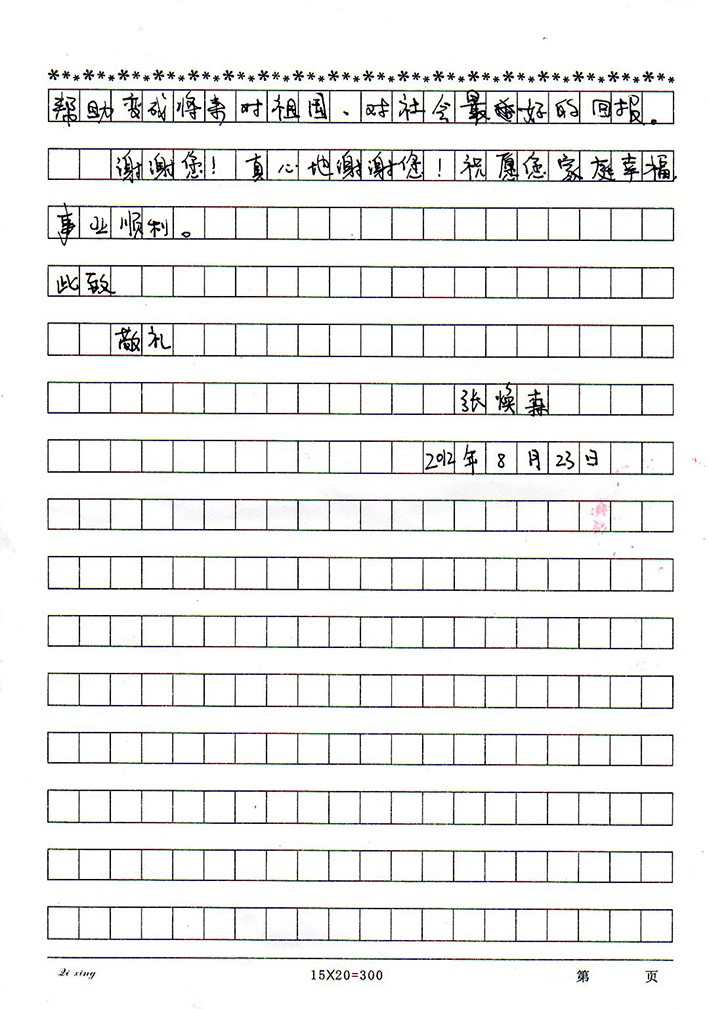 帮助变成将来对祖国、对社会最好的回报。
谢谢您！真心地谢谢您！祝愿您家庭幸福,
事业顺利。
此致
敬礼
张焕森
2012年8月23日
Qi xing
15X20=300
第 页